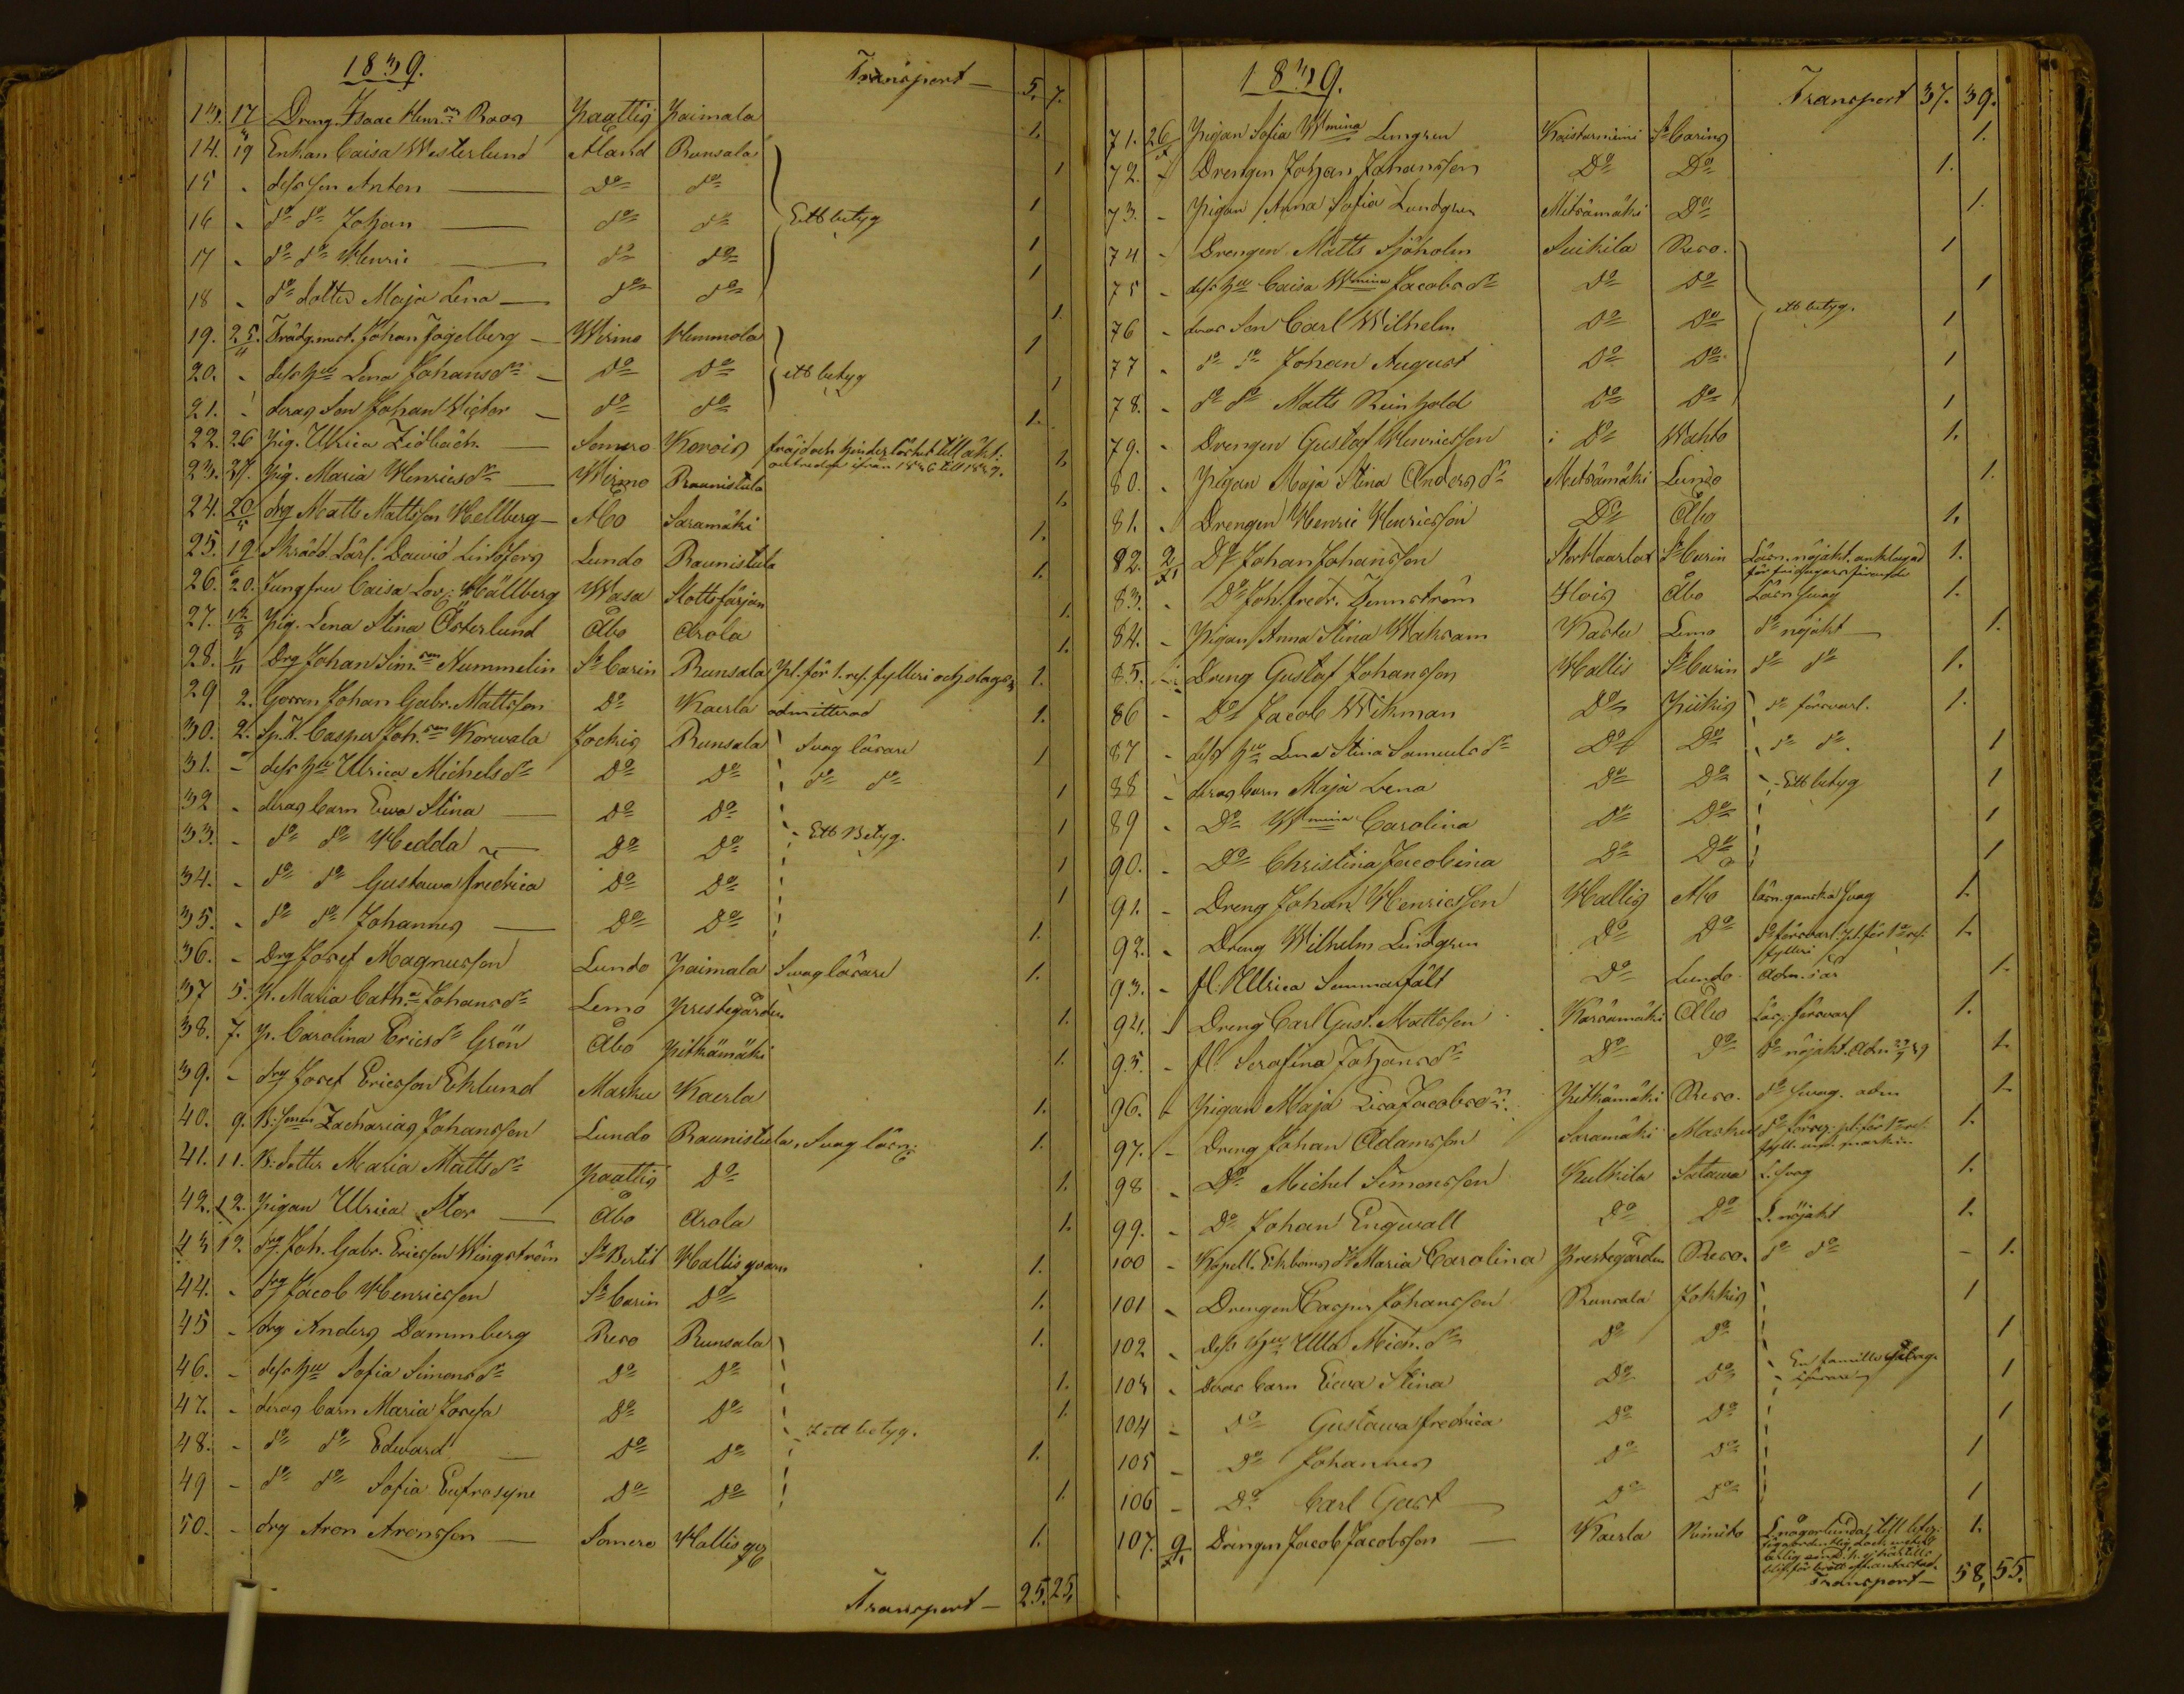 1839.
Transport — 5. 7.
13. 17 Dreng. Isaac Henr:son Roos Paattis Paimala 1.
14. 19 Enkan Caisa Westerlund Åland Runsala 1
15 - dess son Anton — Do do 1
16 - do do Johan — do do Ett betyg 1
17 - do do Henric — do do 1
18 - do dotter Maja Lena — do do 1.
19. 25. Trädg.mest. Johan Fogelberg — Wirmo Hemmola 1
20. - dess hu Lena Johansdr — Do Do ett betyg 1
21. - deras son Johan Victor — do do 1.
22. 26 Pig. Ulrica Zidbäck — Somero Korois 1.
23. 27. Pig. Maria Henricsdr — Wirmo Raunistula 1.
24. 20/5 drg Matts Mattsson Hellberg — Åbo Saramäki 1.
25. 19 Skrädd. Lärl. David Lindfors Lundo Raunistula 1.
26. 20. Jungfru Caisa Lov: Hällberg Wasa Slottsfärjan 1.
27. Pig. Lena Stina Österlund Åbo Arola 1.
28. 1/11 Drg Johan Sim:son Nummelin St Carin Runsala Pl. för 1. res. fylleri och slagsm 1.
29 2. Gossen Johan Gabr. Mattsson Do Kaerla admitterad 1.
30. 2. Sp. K. Casper Joh.son Korwala Jockis Runsala Svag läsare 1
31. - dess hu Ulrica Michelsdr Do Do do do 1
32 - deras barn Ewa Stina — Do Do 1
33. - do do Hedda — Do Do Ett Betyg. 1
34. - do do Gustava Fredrica Do Do 1
35. - do do Johannes — Do Do 1.
36. - Drg Josef Magnusson Lundo Paimala Svag läsare 1.
37 5. P. Maria Cath:a Johansdr Lemo Prestegården 1.
38. 7. P. Carolina Ericsdr Grön Åbo Pitkämäki 1.
39. - drg Josef Ericsson Eklund Masku Kaerla 1.
40. 9. B:sonen Zacharias Johansson Lundo Raunistula Svag läsn: 1.
41. 11. B:dotter Maria Mattsdr Paattis Do 1.
42. 12. Pigan Ulrica Stor — Åbo Arola 1.
43 12. drg. Joh. Gabr. Ericsson Wingström St Bertil Hallis qvarn 1.
44. - drg Jacob Henricsson St Carin Do 1.
45 - drg Anders Dammberg Reso Runsala 1.
46. - dess hu Sofia Simonsdr Do Do 1.
47. - deras barn Maria Josefa Do Do 1.
48. - do do Edward — Do Do I ett betyg. 1.
49 - do do Sofia Eufrosyne Do Do 1.
50. - drg Aron Aronsson — Somero Hallis 1.
Transport — 25. 25.
1839.
Transport 37. 39.
71. 26 Pigan Sofia Wmina Lemgren Kaistarniemi St Carins 1.
72. - Drengen Johan Johansson Do Do 1.
73. - Pigan Anna Sofia Lundgren Metsämäki Do 1.
74 - Drengen Matts Sjöholm Suikila Reso. 1
75 - dess hu Caisa Wmina Jacobsdr Do Do 1
76 - deras son Carl Wilhelm Do Do ett betyg. 1
77 - do do Johan August Do Do 1
78. - do do Matts Reinhold Do Do 1
79. - Drengen Gustaf Henricsson Do Wahto 1.
80. - Pigan Maja Stina Andersdr Metsämäki Lundo 1.
81. - Drengen Henric Henricsson Do Åbo 1.
82. 2 Do Johan Johansson StorHaarlax St Carin Läsn. nöjakt. anklagad 1.
83. - Do Joh. Fredr. Tennström Hois Åbo Läsn Svag 1.
84. - Pigan Anna Stina Wahram Kastu Lemo do nöjakt 1.
85. - Dreng Gustaf Johansson Hallis St Carin do do 1.
86 - Do Jacob Wikman Do Piikis do försvarl. 1.
87 - dess hu Lena Stina Samuelsdr Do Do do do. 1
88 - deras barn Maja Lena Do Do Ett betyg 1
89 - Do Wmina Carolina Do Do 1
90. - Do Christina Jacobina Do Do 1
91. - Dreng Johan Henricsson Hallis Åbo läsn. ganska svag 1.
92. - Dreng Wilhelm Lindgren Do Do do försvarl. pl. för 1a res. fylleri 1.
93. - fl. Ulrica Sommarfält Do Lundo. Adm. i år 1.
94. - Dreng Carl Gust. Mattsson Karsämäki Åbo Läsn. försvarl 1.
95. - fl. Serafina Johansdr Do Do do nöjakt. Adm 39 1.
96. - Pigan Maja Lisa Jacobsdr. Pitkämäki Reso. do svag. adm 1.
97. - Dreng Johan Adamsson Saramäki Masku 1.
98 - Do Michel Simonsson Kulkila Satava L. svag 1.
99. - Do Johan Engwall Do Do L. nöjakt 1.
100 - Kapell. Ekboms dr Maria Carolina Prestegården Reso. do do 1.
101 - Drengen Casper Johansson Runsala Jokkis 1
102 - dess hu Ulla Mich.dr Do Do 1
103 - deras barn Ewa Stina Do Do 1
104 - Do Gustava Fredrica Do Do 1
105 - Do Johannes Do Do 1
106 - Do Carl Gust — Do Do 1
107. 9 Drengen Jacob Jacobsson — Kaerla Nimito 1.
Transport — 58. 55.